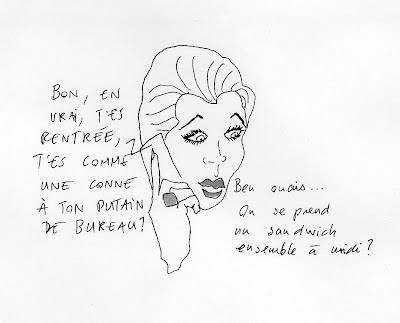 BON, EN
VRAI, T'ES
RENTRÉE,
T'ES COMME
UNE CONNE
À TON PUTAIN
DE BUREAU?
Ben ouais...
On se prend
un sandwich
ensemble à midi?